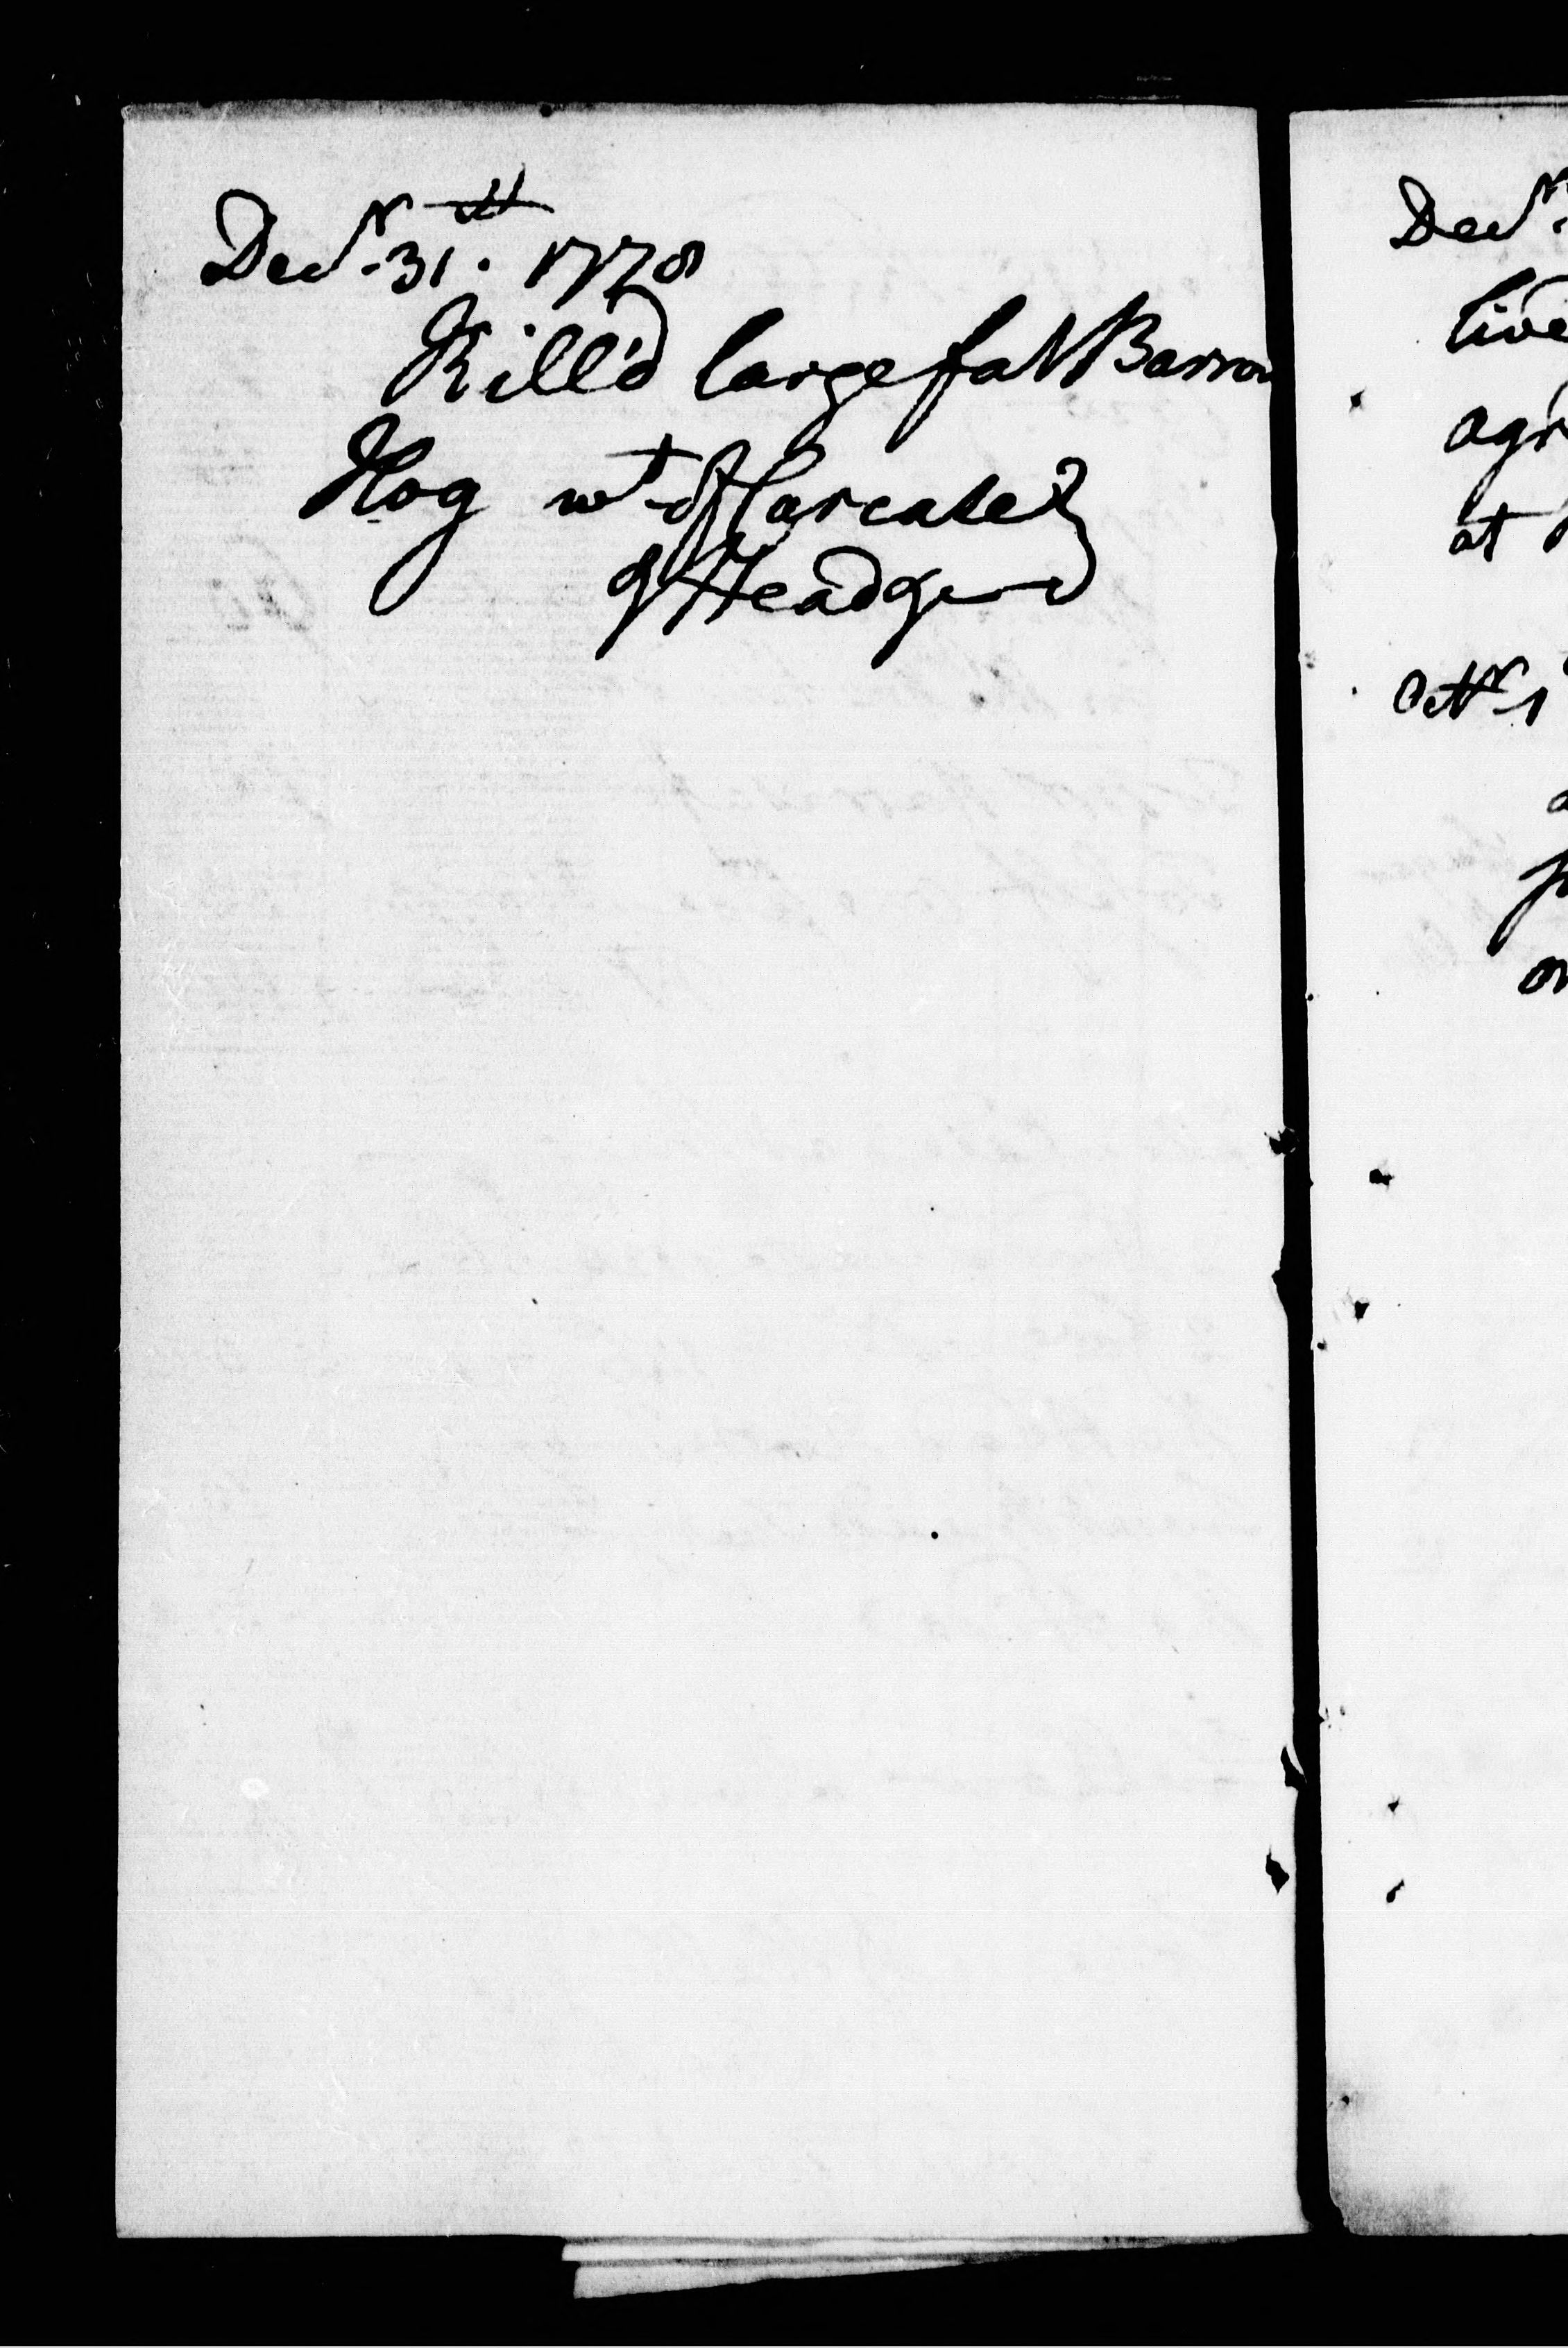 Decr. 31st. 1778
Kill'd large fat Barrow
Hog wt. of Carcase
of Head &c
Decr.
live
agr
at
Octr. 1
a
p
on